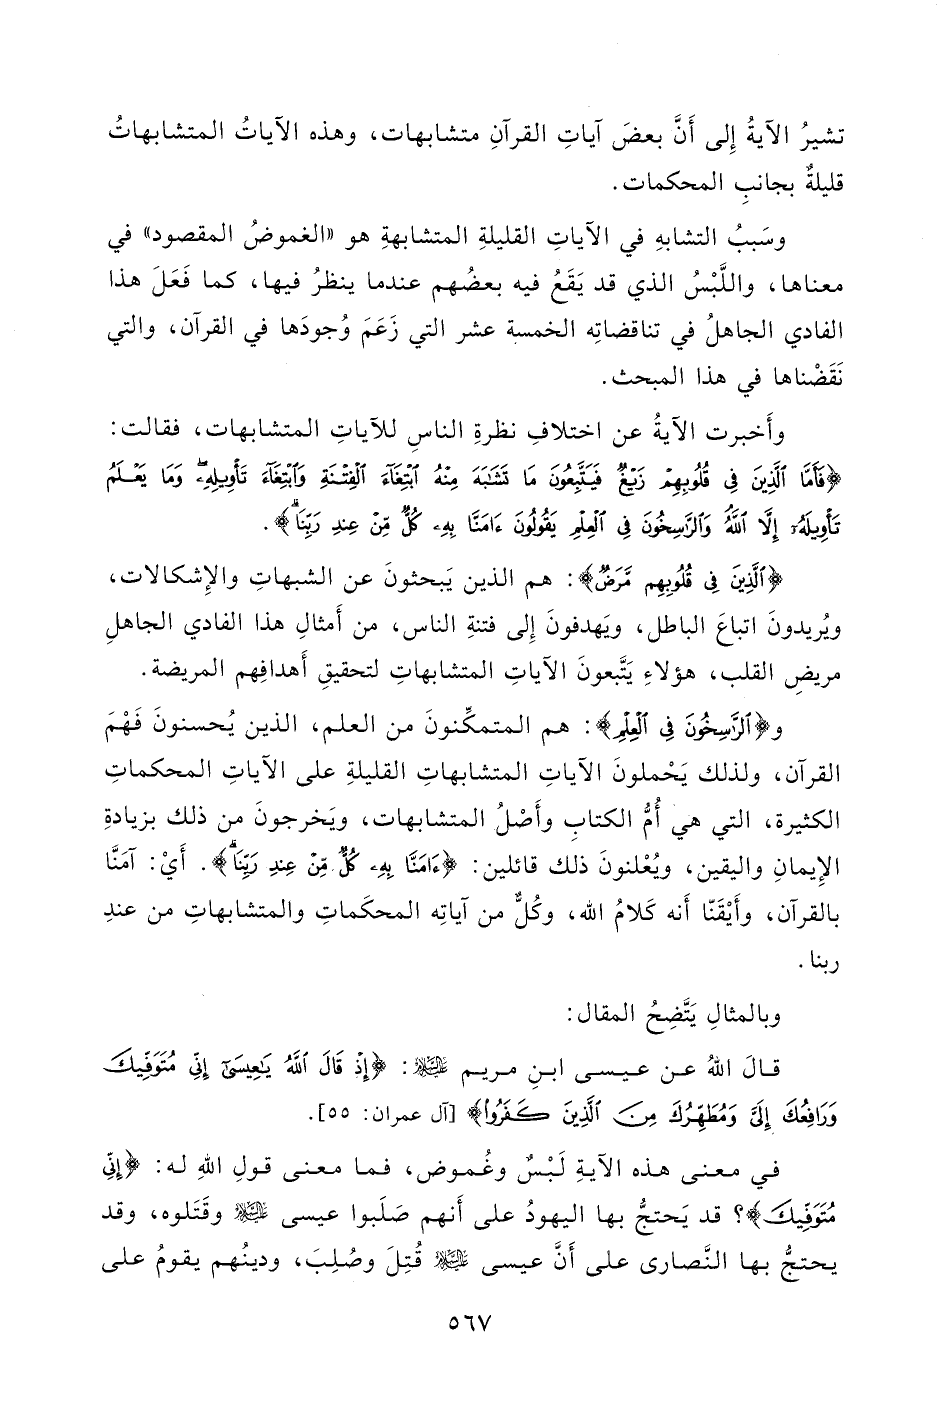 تشيرُ الآيةُ إِلى أَنَّ بعضَ آياتِ القرآنِ متشابهات، وهذه الآياتُ المتشابهاتُ
قليلةٌ بجانبِ المحكمات.
وسَببُ التشابهِ في الآياتِ القليلةِ المتشابهةِ هو «الغموضُ المقصود» في
معناها، واللَّبْسُ الذي قد يَقَعُ فيه بعضُهم عندما ينظرُ فيها، كما فَعَلَ هذا
الفادي الجاهلُ في تناقضاتِه الخمسة عشر التي زَعَمَ وُجودَها في القرآن، والتي
نَقَضْناها في هذا المبحث.
وأَخبرت الآيةُ عن اختلافِ نظرةِ الناسِ للآياتِ المتشابهات، فقالت:
﴿فَأَمَّا ٱلَّذِينَ فِى قُلُوبِهِمْ زَيْغٌ فَيَتَّبِعُونَ مَا تَشَٰبَهَ مِنْهُ ٱبْتِغَآءَ ٱلْفِتْنَةِ وَٱبْتِغَآءَ تَأْوِيلِهِۦۖ وَمَا يَعْلَمُ
تَأْوِيلَهُۥٓ إِلَّا ٱللَّهُ وَٱلرَّٰسِخُونَ فِى ٱلْعِلْمِ يَقُولُونَ ءَامَنَّا بِهِۦ كُلٌّ مِّنْ عِندِ رَبِّنَاۗ﴾.
﴿ٱلَّذِينَ فِى قُلُوبِهِم مَّرَضٌ﴾: هم الذين يَبحثونَ عن الشبهاتِ والإِشكالات،
ويُريدونَ اتباعَ الباطل، ويَهدفونَ إِلى فتنةِ الناس، من أَمثالِ هذا الفادي الجاهلِ
مريضِ القلب، هؤلاءِ يَتَّبعونَ الآياتِ المتشابهاتِ لتحقيقِ أَهدافِهم المريضة.
و﴿ٱلرَّٰسِخُونَ فِى ٱلْعِلْمِ﴾: هم المتمكِّنونَ من العلم، الذين يُحسنونَ فَهْمَ
القرآن، ولذلك يَحْملونَ الآياتِ المتشابهاتِ القليلةِ على الآياتِ المحكماتِ
الكثيرة، التي هي أُمُّ الكتابِ وأَصْلُ المتشابهات، ويَخرجونَ من ذلك بزيادةِ
الإِيمانِ واليقين، ويُعْلنونَ ذلك قائلين: ﴿ءَامَنَّا بِهِۦ كُلٌّ مِّنْ عِندِ رَبِّنَاۗ﴾. أَيْ: آمَنَّا
بالقرآن، وأَيْقَنّا أنه كَلامُ الله، وكُلٌّ من آياتِه المحكَماتِ والمتشابهاتِ من عندِ
ربنا.
وبالمثالِ يَتَّضِحُ المقال:
قالَ اللهُ عن عيسى ابنِ مريم عليه السلام: ﴿إِذْ قَالَ ٱللَّهُ يَٰعِيسَىٰٓ إِنِّى مُتَوَفِّيكَ
وَرَافِعُكَ إِلَىَّ وَمُطَهِّرُكَ مِنَ ٱلَّذِينَ كَفَرُوا۟﴾ [آل عمران: ٥٥].
في معنى هذه الآيةِ لَبْسٌ وغُموض، فما معنى قولِ اللهِ له: ﴿إِنِّى
مُتَوَفِّيكَ﴾؟ قد يَحتجُّ بها اليهودُ على أَنهم صَلَبوا عيسى عليه السلام وقَتَلوه، وقد
يحتجُّ بها النَّصارى على أَنَّ عيسى عليه السلام قُتِلَ وصُلِبَ، ودينُهم يقومُ على
٥٦٧